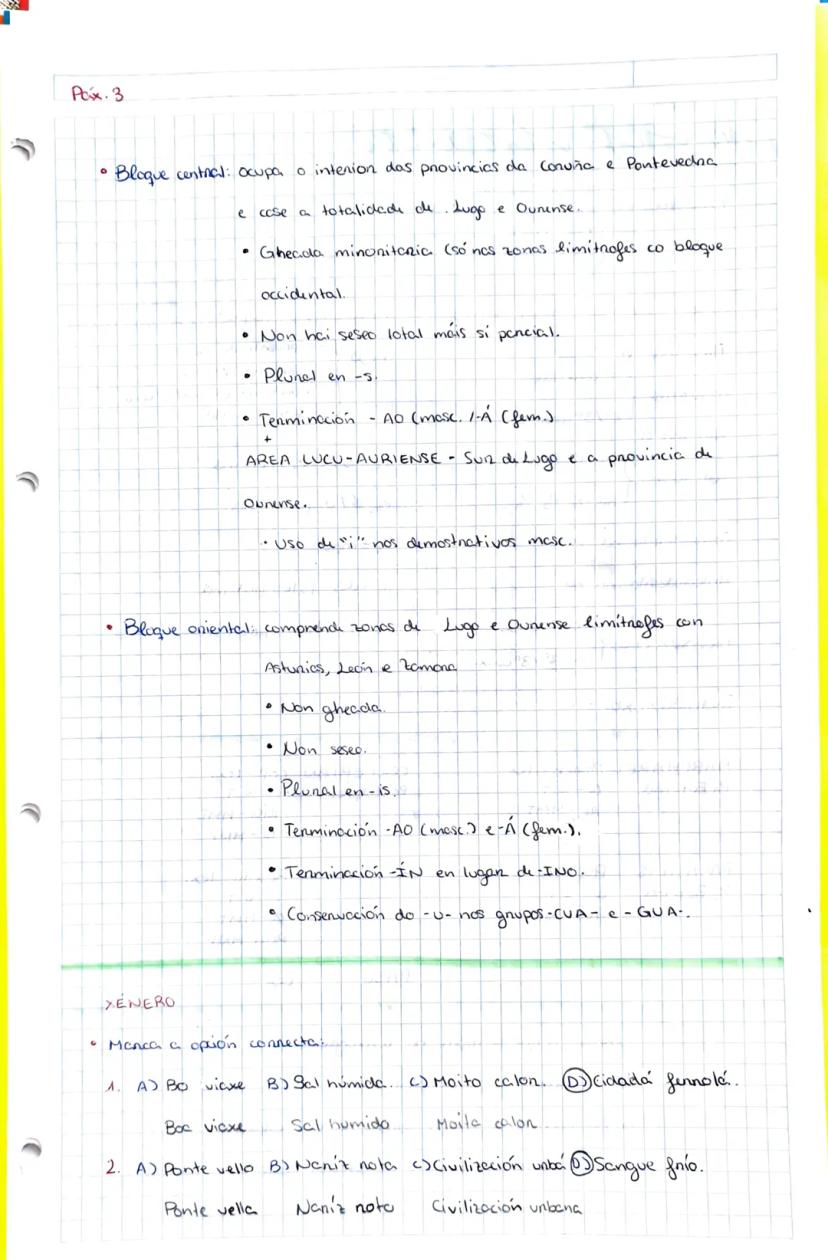 Páx. 3
• Bloque central: ocupa o interior das provincias da Coruña e Pontevedra
e case a totalidade de Lugo e Ourense.
• Gheada minoritaria (só nas zonas limítrofes co bloque
occidental.
• Non hai seseo total máis si parcial.
• Plural en -s.
• Terminación - AO (masc. /-Á (fem.)
+
AREA LUCU-AURIENSE - Sur de Lugo e a provincia de
Ourense.
· Uso de "i" nos demostrativos masc.
• Bloque oriental: comprende zonas de Lugo e Ourense limítrofes con
Asturias, León e Zamora
• Non gheada.
• Non seseo.
• Plural en -is.
• Terminación -AO (masc.) e -Á (fem.).
• Terminación -ÍN en lugar de -INO.
• Conservación do -U- nos grupos -CUA- e -GUA-.
XÉNERO
• Marca a opción correcta:
1. A) Bo viaxe B) Sal húmida. C) Moito calor. D) Cidadá ferrolá.
Boa viaxe Sal humido Moita calor
2. A) Ponte vello B) Naríz rota C) Civilización urbá D) Sangue frío.
Ponte vella Naríz roto Civilización urbana